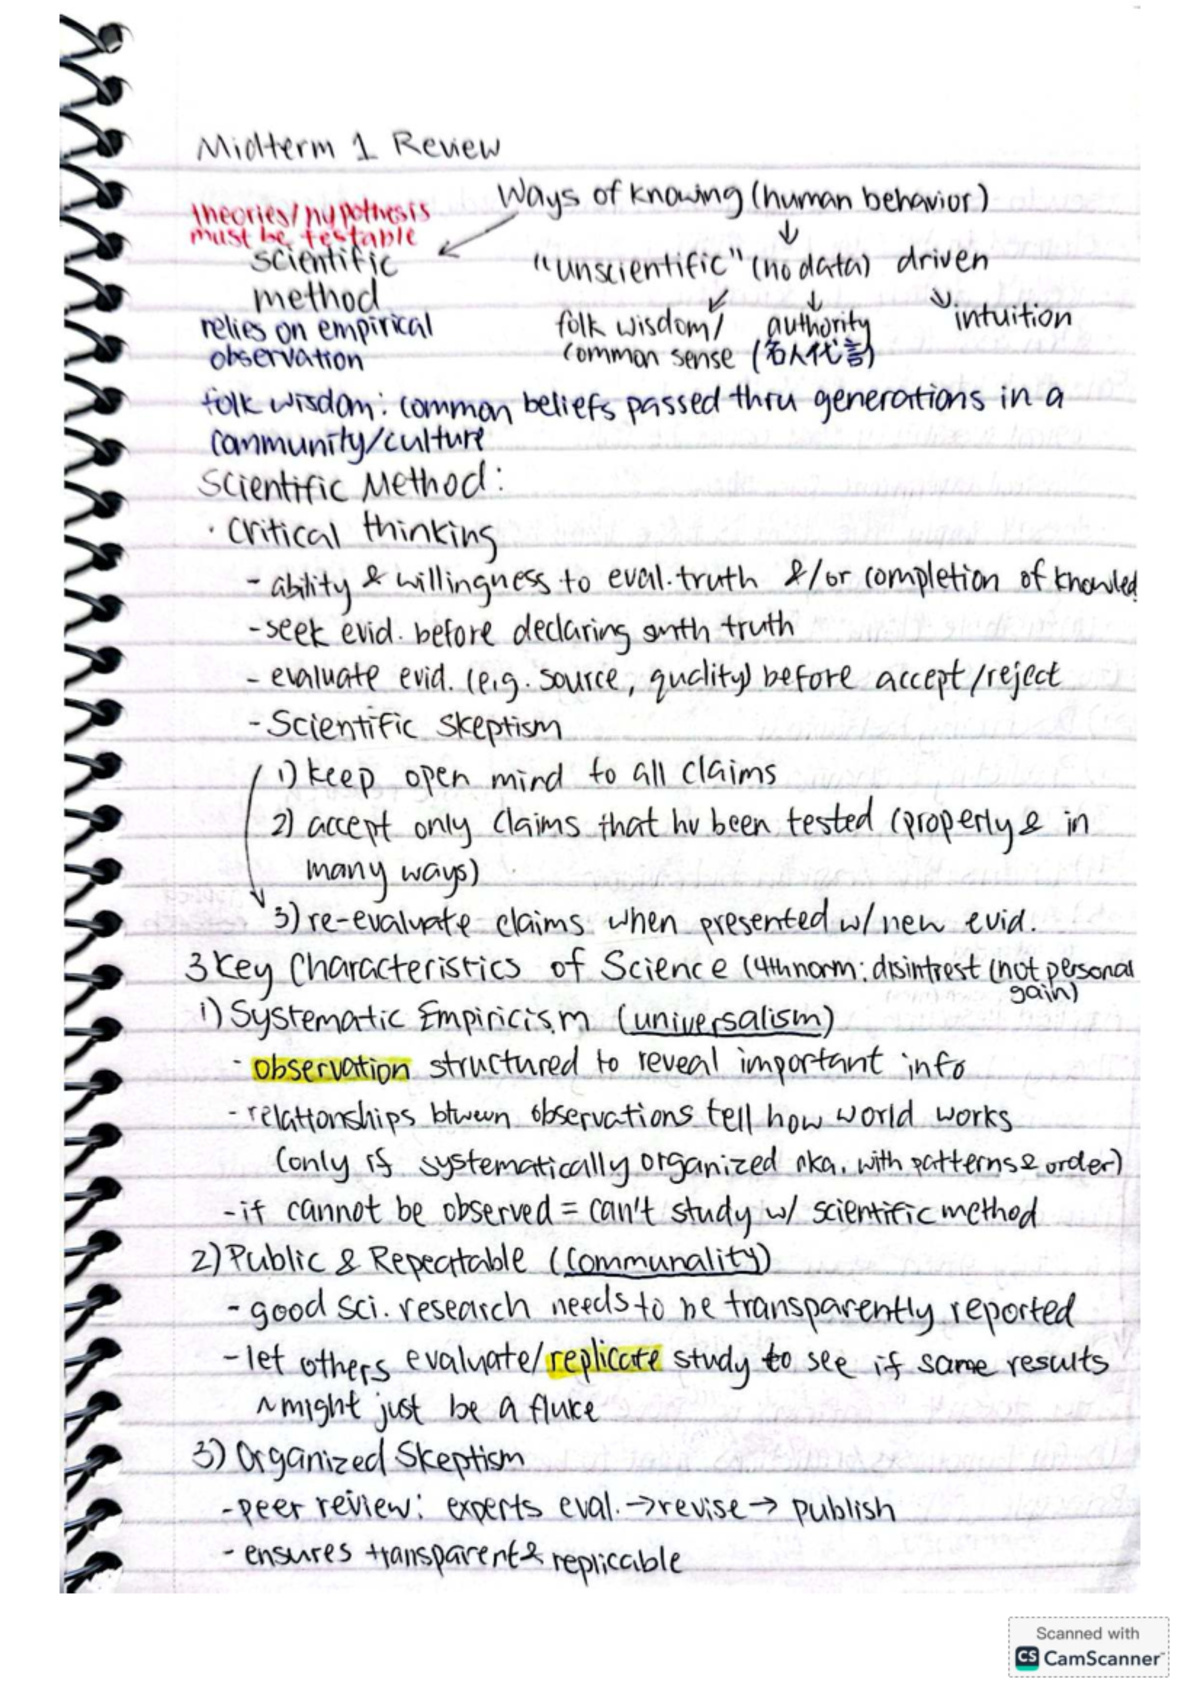 Midterm 1 Review
Ways of knowing (human behavior)
theories/hypothesis
must be testable
scientific
method
"unscientific" (no data) driven
relies on empirical
observation
folk wisdom/
common sense
authority
(名人代言)
intuition
folk wisdom: common beliefs passed thru generations in a
community/culture
Scientific Method:
· Critical thinking
- ability & willingness to eval. truth &/or completion of knowled
- seek evid. before declaring smth truth
- evaluate evid. (e.g. source, quality) before accept/reject
- Scientific Skeptism
1) keep open mind to all claims
2) accept only claims that hv been tested (properly & in
many ways)
3) re-evaluate claims when presented w/ new evid.
3 Key Characteristics of Science (4th norm: disintrest (not personal
gain)
1) Systematic Empiricism (universalism)
- observation structured to reveal important info
- relationships btween observations tell how world works
(only if systematically organized aka. with patterns & order)
- if cannot be observed = can't study w/ scientific method
2) Public & Repeatable (communality)
- good sci. research needs to be transparently reported
- let others evaluate/replicate study to see if same results
~might just be a fluke
3) Organized Skeptism
- peer review: experts eval. → revise → publish
- ensures transparent & replicable
Scanned with
CS CamScanner